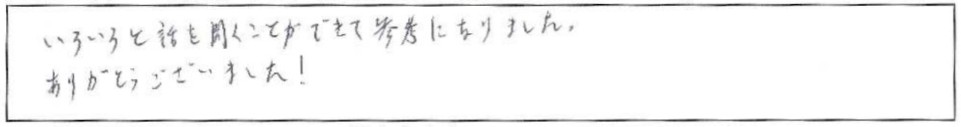 いろいろと話を聞くことができて参考になりました。
ありがとうございました!